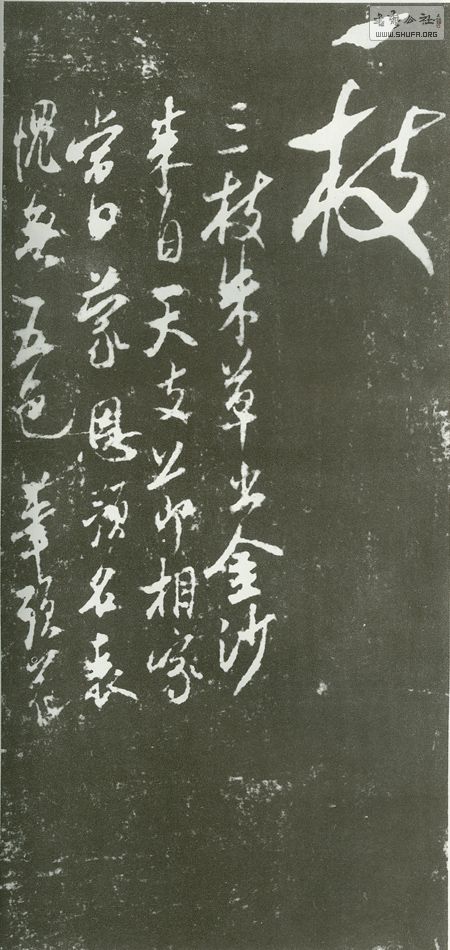 書藝公社
WWW.SHUFA.ORG
枝
三枝朱草出金沙
来自天支節相家
當日蒙恩預名表
愧無五色筆頭花